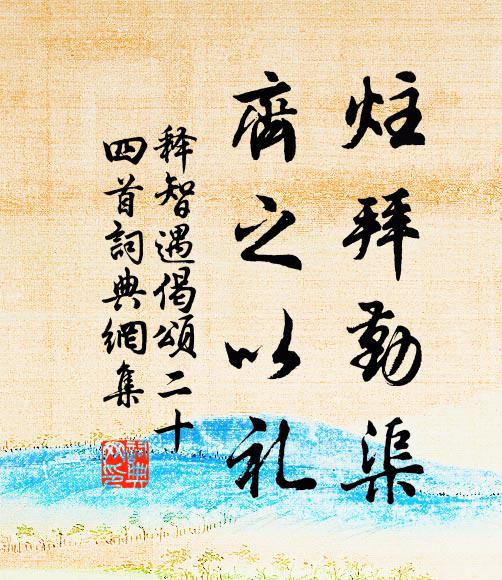 炷拜勤渠
齊之以礼
释智遇偈頌二十
四首詞典網集